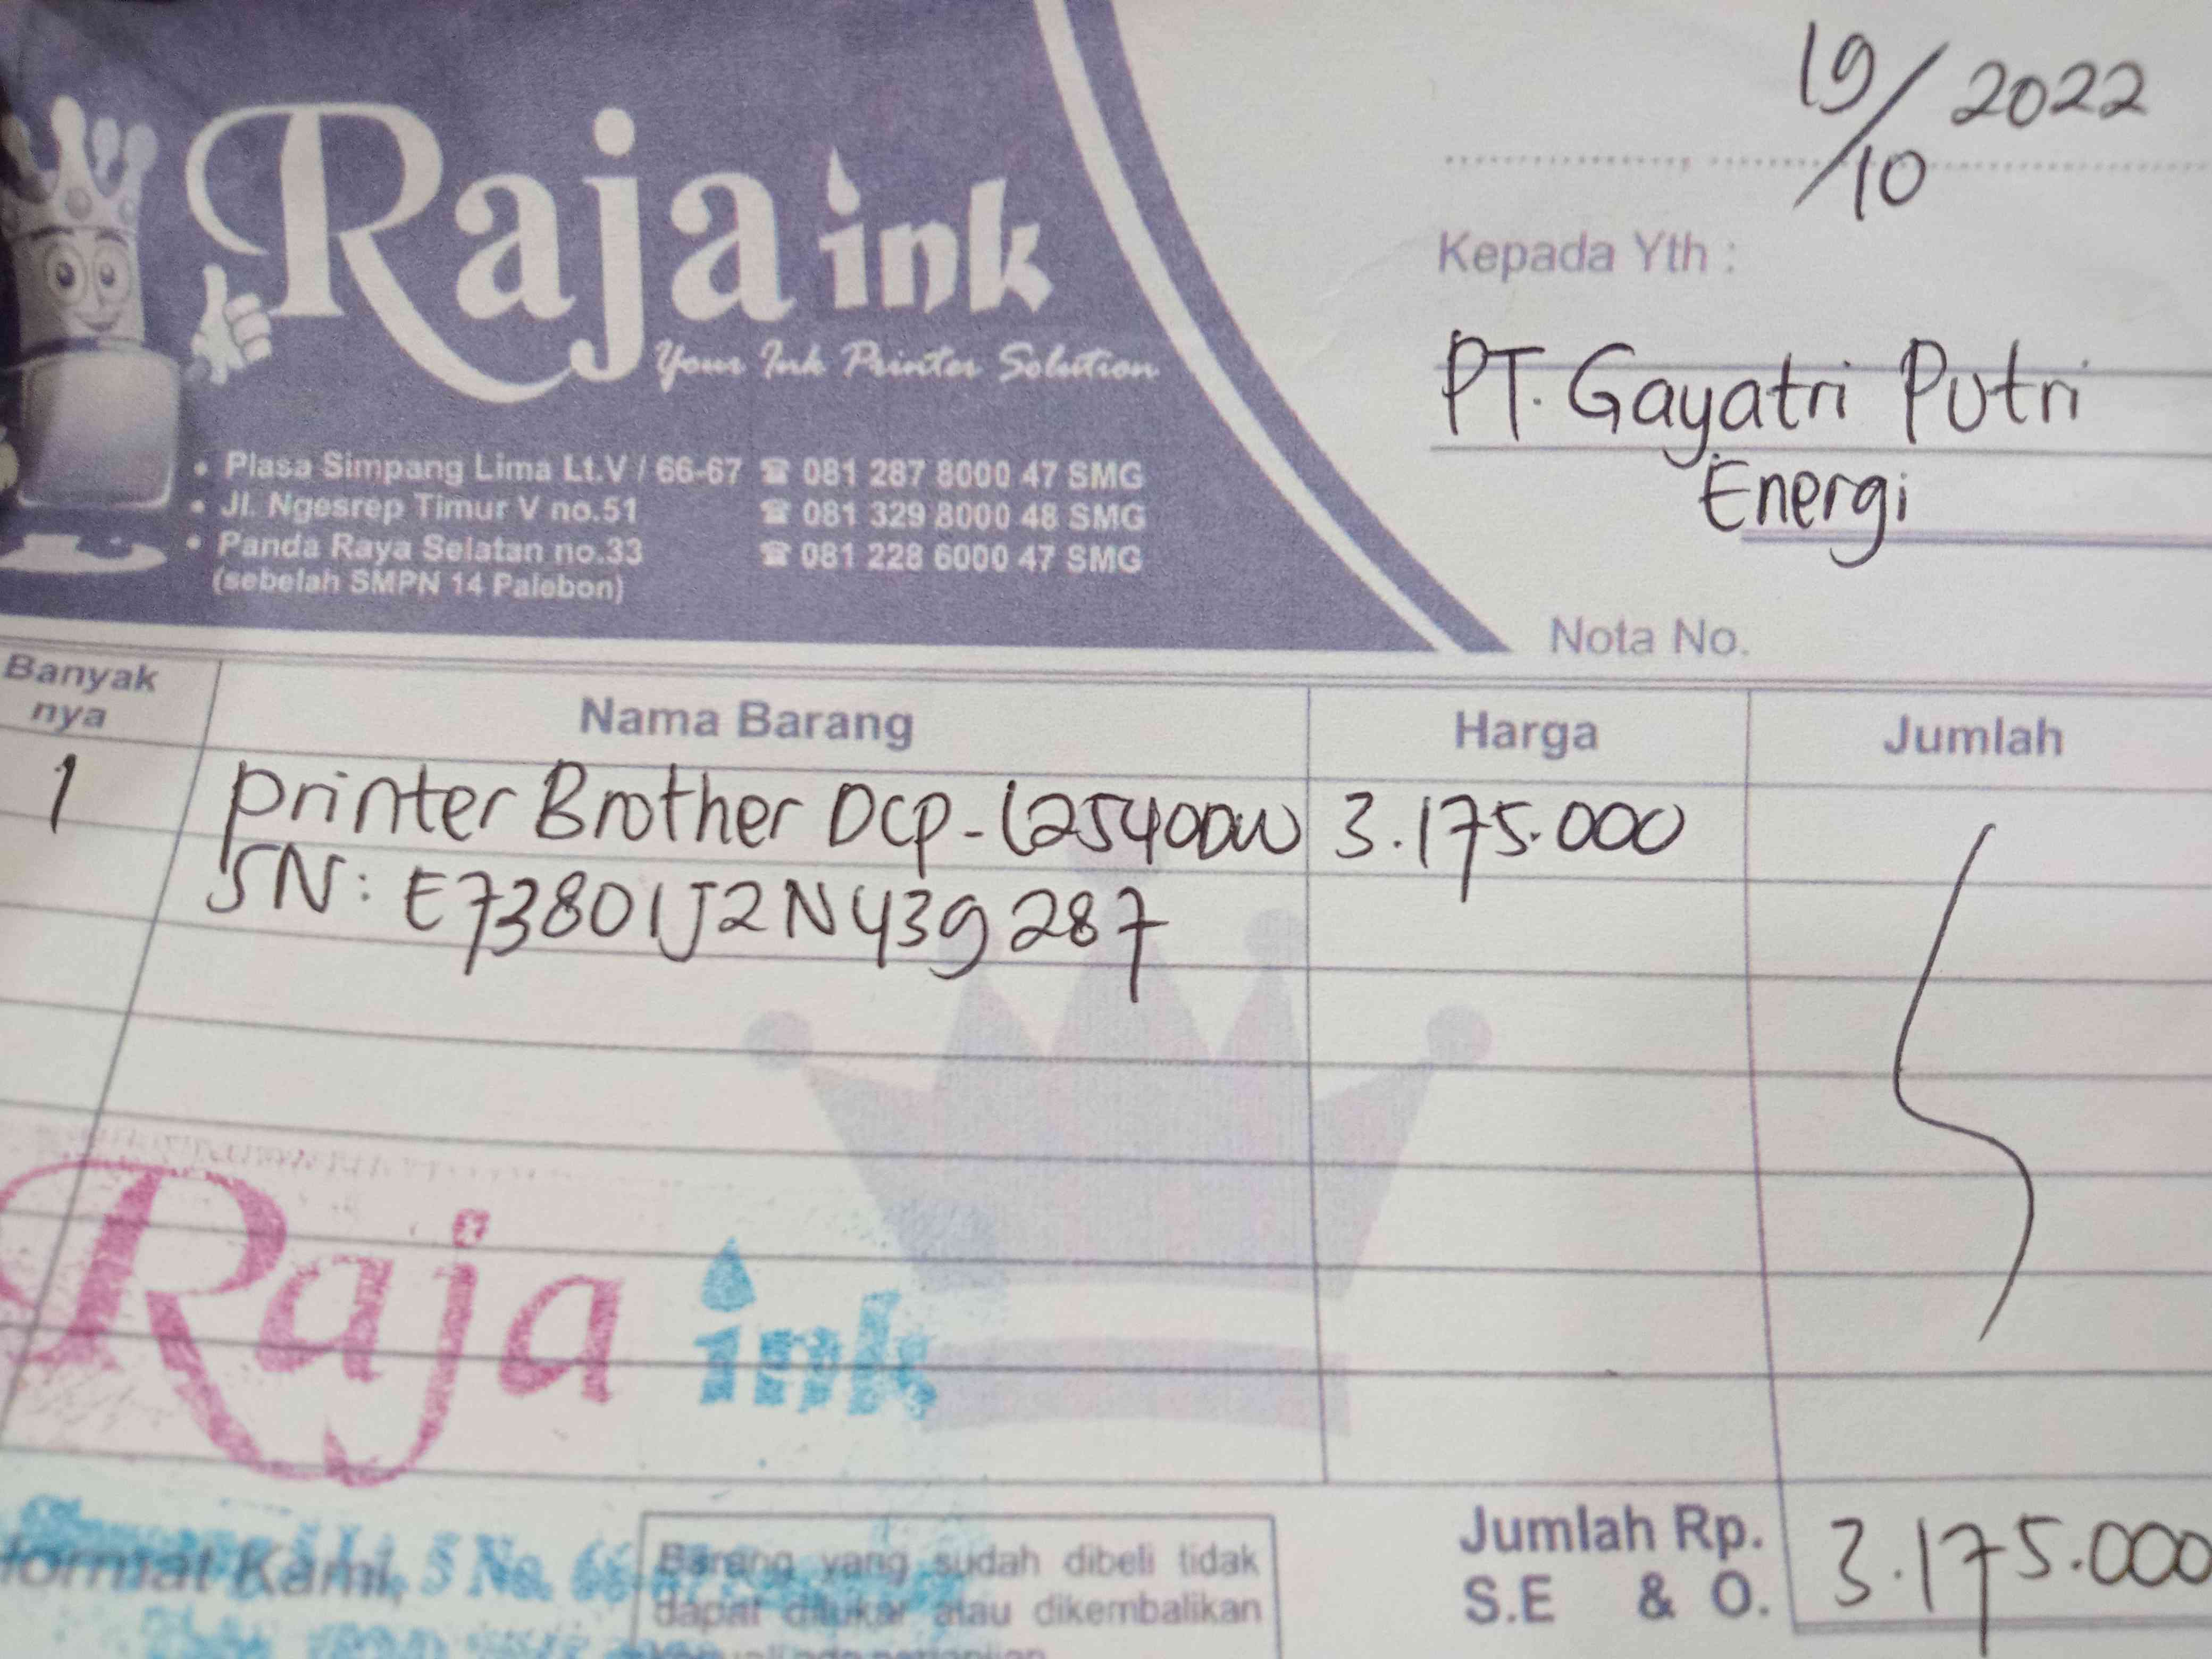 Raja ink
Your Ink Printer Solution
• Plasa Simpang Lima Lt.V / 66-67 ☎ 081 287 8000 47 SMG
• Jl. Ngesrep Timur V no.51 ☎ 081 329 8000 48 SMG
• Panda Raya Selatan no.33 ☎ 081 228 6000 47 SMG
(sebelah SMPN 14 Palebon)
19/10 2022
Kepada Yth :
PT. Gayatri Putri
Energi
Nota No.
Banyak
nya
Nama Barang
Harga
Jumlah
1 Printer Brother DCP-L2540DW 3.175.000
SN: E73801J2N439287
Raja ink
Jumlah Rp. 3.175.000
S.E & O.
Kami,
5 No. 66
Barang yang sudah dibeli tidak
dapat ditukar atau dikembalikan